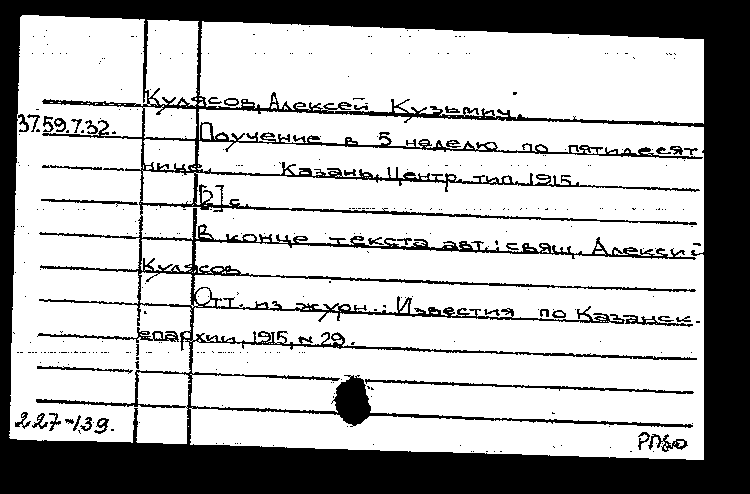 Кулясов, Алексей Кузьмич.
37.59.7.32.
Поучение в 5 неделю по пятидесят-
нице. Казань, Центр. тип. 1915.
[2] с.
В конце текста авт.: свящ. Алексий
Кулясов.
Отт. из журн.: Известия по Казанск.
епархии, 1915, № 29.
227-139.